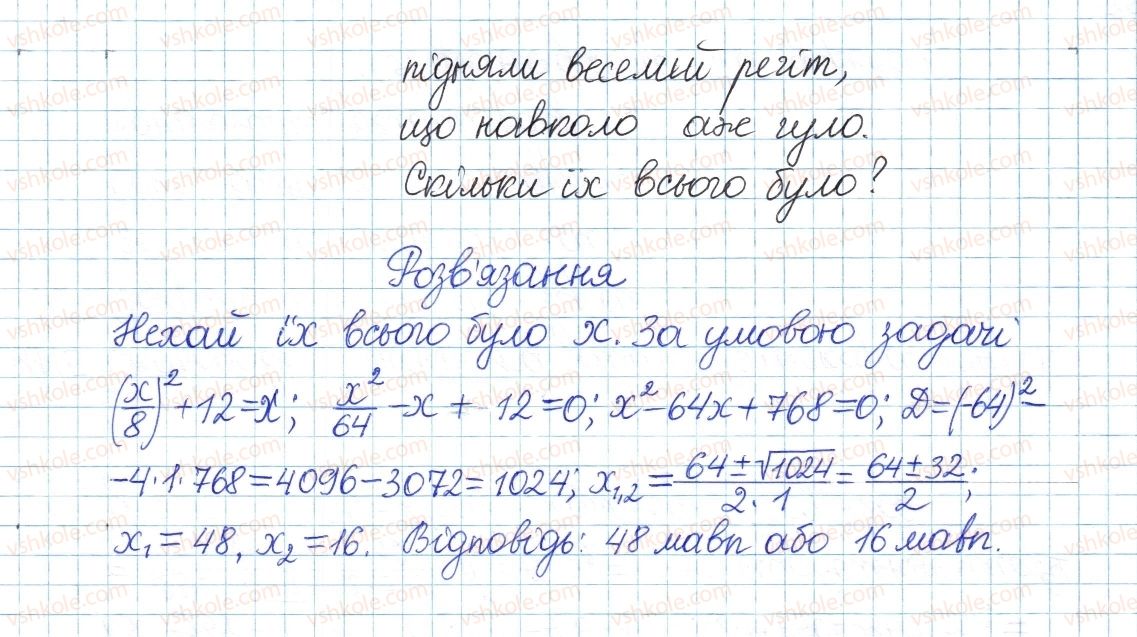 підняли веселий регіт,
що навколо аж гуло.
Скільки їх всього було?
Розв'язання
Нехай їх всього було x. За умовою задачі
(x/8)² + 12 = x; x²/64 - x + 12 = 0; x² - 64x + 768 = 0; D = (-64)² -
- 4·1·768 = 4096 - 3072 = 1024; x₁,₂ = (64 ± √1024)/(2·1) = (64 ± 32)/2;
x₁ = 48, x₂ = 16. Відповідь: 48 мавп або 16 мавп.